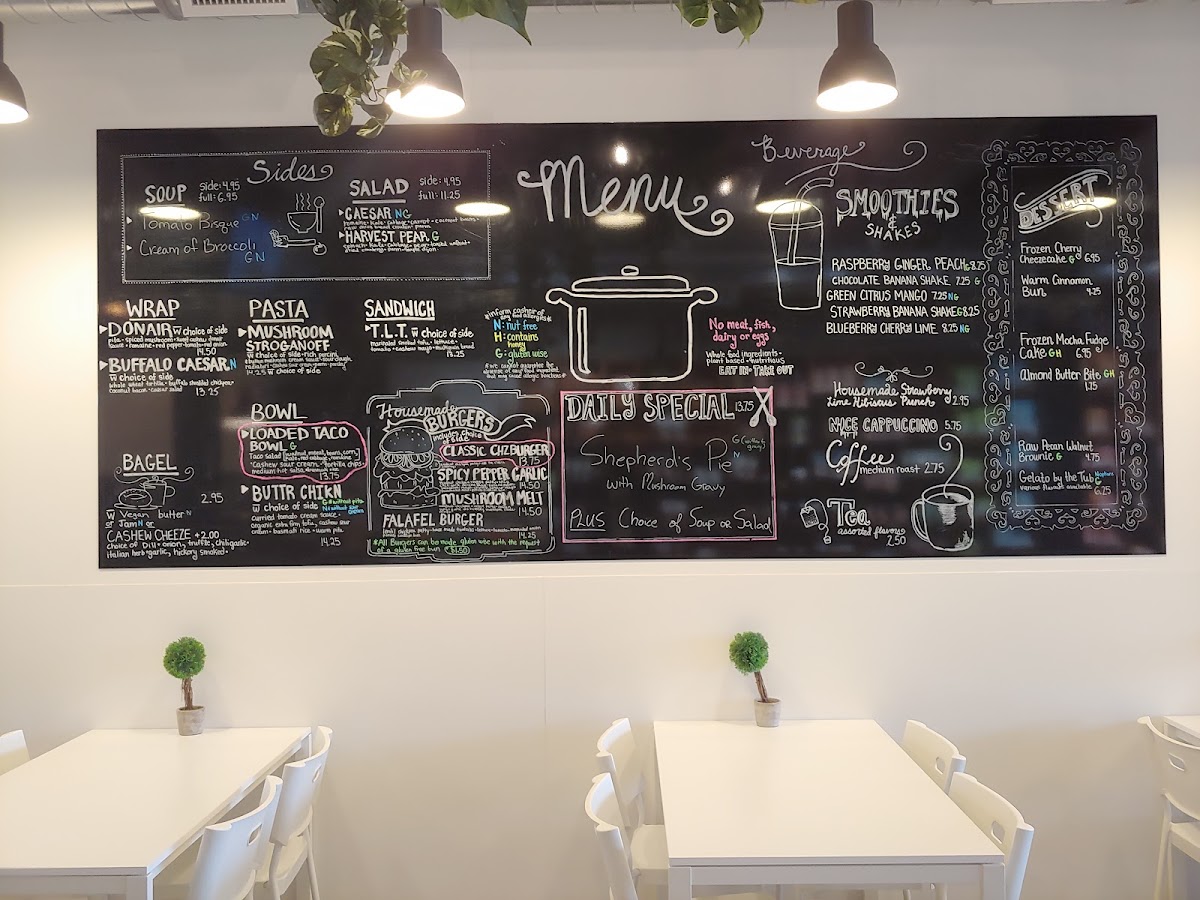 Sides
SOUP side: 4.95
full: 6.95
Tomato Bisque GN
Cream of Broccoli
GN
SALAD side: 4.95
full: 11.25
CAESAR NG
HARVEST PEAR G
Menu
WRAP
DONAIR w choice of side
14.50
BUFFALO CAESAR N
w choice of side
13.25
PASTA
MUSHROOM
STROGANOFF
w choice of side
SANDWICH
T.L.T. w choice of side
13.25
N: nut free
H: contains
honey
G: gluten wise
No meat, fish,
dairy or eggs
Whole food ingredients
plant based nutritious
EAT IN TAKE OUT
BAGEL
2.95
w Vegan butter N
or Jam N or
CASHEW CHEEZE +2.00
choice of Dill + onion, truffle, chili garlic
italian herb + garlic, hickory smoked
BOWL
LOADED TACO
BOWL G
13.75
BUTTR CHIKN
w choice of side
14.25
Housemade
BURGERS
includes choice
of sides
CLASSIC CHZBURGER
13.75
SPICY PEPPER GARLIC
14.50
MUSHROOM MELT
14.50
FALAFEL BURGER
14.25
*All Burgers can be made gluten wise with the request
of a gluten free bun $1.50
DAILY SPECIAL 13.75
Shepherd's Pie N
with Mushroom Gravy
PLUS Choice of Soup or Salad
Beverage
SMOOTHIES
&
SHAKES
RASPBERRY GINGER PEACH G 8.25
CHOCOLATE BANANA SHAKE 7.25 G
GREEN CITRUS MANGO 7.25 NG
STRAWBERRY BANANA SHAKE G 8.25
BLUEBERRY CHERRY LIME 8.25 NG
Housemade Strawberry
Lime Hibiscus Punch 2.95
NICE CAPPUCCINO 5.75
Coffee medium roast 2.75
Tea assorted flavors
2.50
DESSERT
Frozen Cherry
Cheezecake G 6.95
Warm Cinnamon
Bun 4.25
Frozen Mocha Fudge
Cake GH 6.95
Almond Butter Bite GH
1.75
Raw Pecan Walnut
Brownie G 4.75
Gelato by the Tub G
various flavours available 6.25